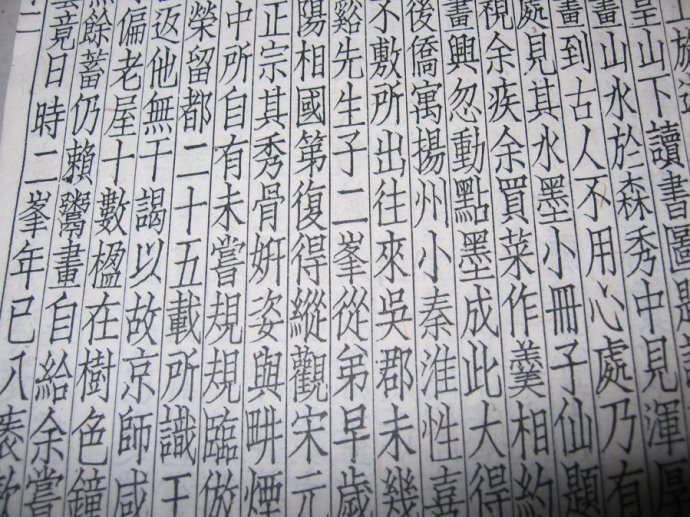 山下讀書圖題
畫山水於森秀中見渾厚
畫到古人不用心處乃有
處見其水墨小冊子仙題
視余疾余買菜作羹相約
畫興忽動點墨成此大得
後僑寓揚州小秦淮性喜
不敷所出往來吳郡未幾
谿先生子二峯從弟早歲
陽相國第復得縱觀宋元
正宗其秀骨姸姿與畊煙
中所自有未嘗規規臨倣
榮留都二十五載所識工
返他無干謁以故京師咸
偏老屋十數楹在樹色鐘
餘蓄仍賴鬻畫自給余嘗
竟日時二峯年已八袠